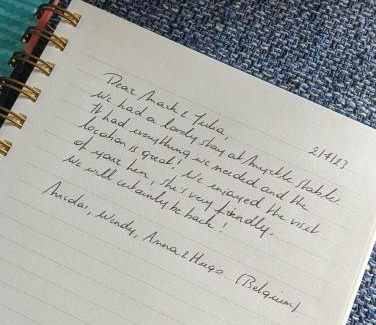 2/4/23
Dear Mark & Julia,
We had a lovely stay at Myrtle Stable.
It had everything we needed and the
location is great! We enjoyed the visit
of your hen, she's very friendly.
We will certainly be back!
Wendy, Anna & Hugo (Belgium)